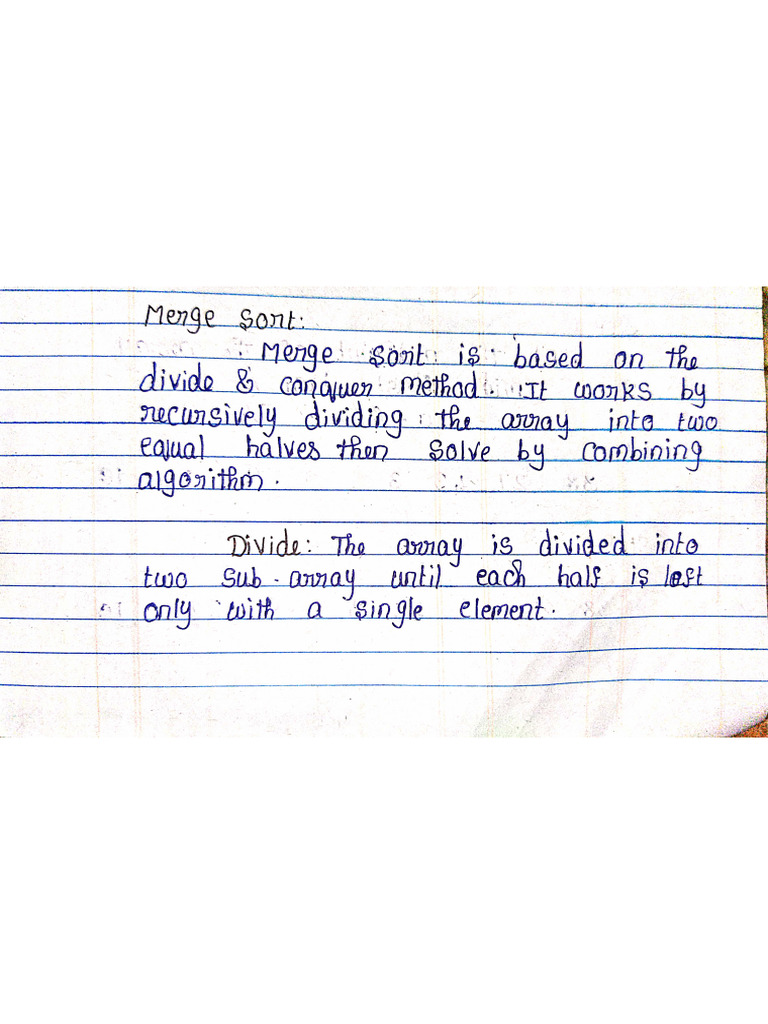 Merge Sort:
Merge Sort is based on the
divide & conquer method. It works by
recursively dividing the array into two
equal halves then solve by combining
algorithm.
Divide: The array is divided into
two sub-array until each half is left
only with a single element.